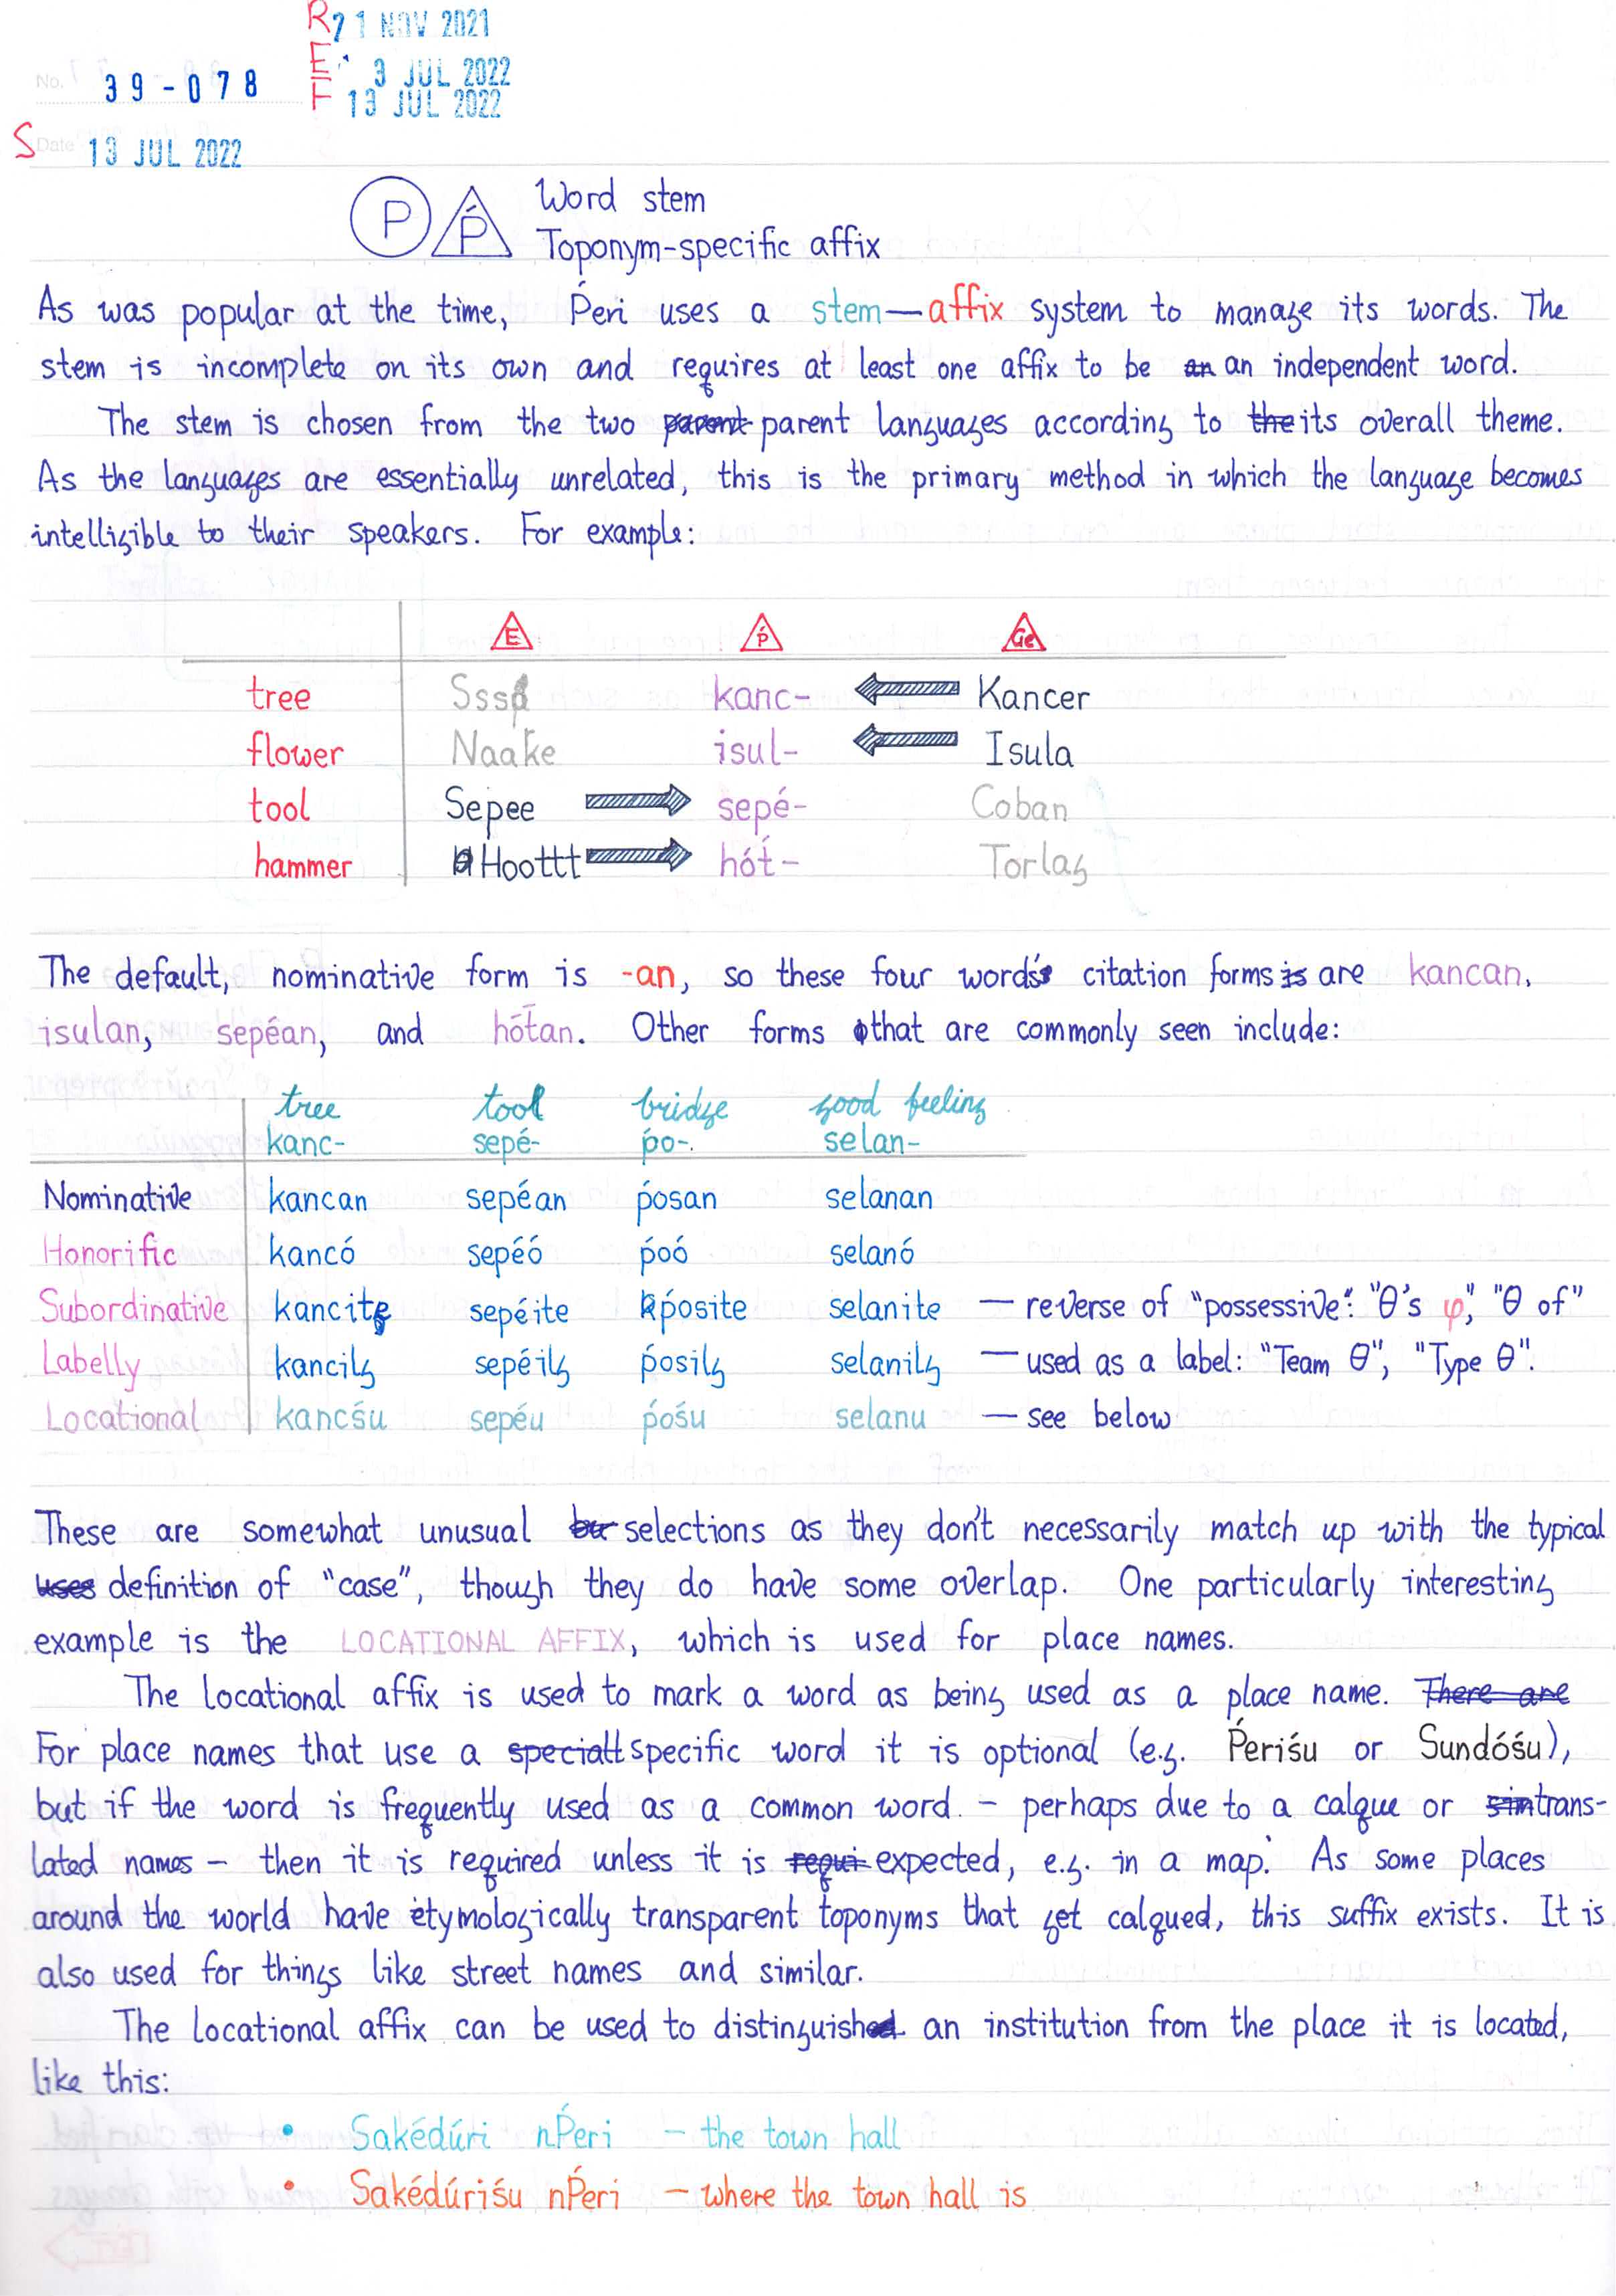 R 21 NOV 2021
E 3 JUL 2022
F 13 JUL 2022
No. 39-078
S Date 13 JUL 2022
P Ṕ Word stem
Toponym-specific affix
As was popular at the time, Ṕeri uses a stem—affix system to manage its words. The
stem is incomplete on its own and requires at least one affix to be an an independent word.
The stem is chosen from the two parent parent languages according to the its overall theme.
As the languages are essentially unrelated, this is the primary method in which the language becomes
intelligible to their speakers. For example:
E Ṕ Ge
tree Sssa kanc- Kancer
flower Naake isul- Isula
tool Sepee sepé- Coban
hammer Hoottt hót́- Torlag
The default, nominative form is -an, so these four words's citation forms is are kancan,
isulan, sepéan, and hót́an. Other forms that are commonly seen include:
tree tool bridge good feeling
kanc- sepé- ṕo- selan-
Nominative kancan sepéan ṕosan selanan
Honorific kancó sepéó ṕoó selanó
Subordinative kancite sepéite ṕosite selanite — reverse of "possessive": "θ's φ", "θ of"
Labelly kancilg sepéilg ṕosilg selanilg — used as a label: "Team θ", "Type θ".
Locational kancśu sepéu ṕośu selanu — see below
These are somewhat unusual bu selections as they don't necessarily match up with the typical
uses definition of "case", though they do have some overlap. One particularly interesting
example is the LOCATIONAL AFFIX, which is used for place names.
The locational affix is used to mark a word as being used as a place name. There are
For place names that use a speciatt specific word it is optional (e.g. Ṕeriśu or Sundóśu),
but if the word is frequently used as a common word - perhaps due to a calque or sim trans-
lated names - then it is required unless it is requi expected, e.g. in a map. As some places
around the world have etymologically transparent toponyms that get calqued, this suffix exists. It is
also used for things like street names and similar.
The locational affix can be used to distinguished an institution from the place it is located,
like this:
• Sakédúri nṔeri - the town hall
• Sakédúriśu nṔeri - where the town hall is